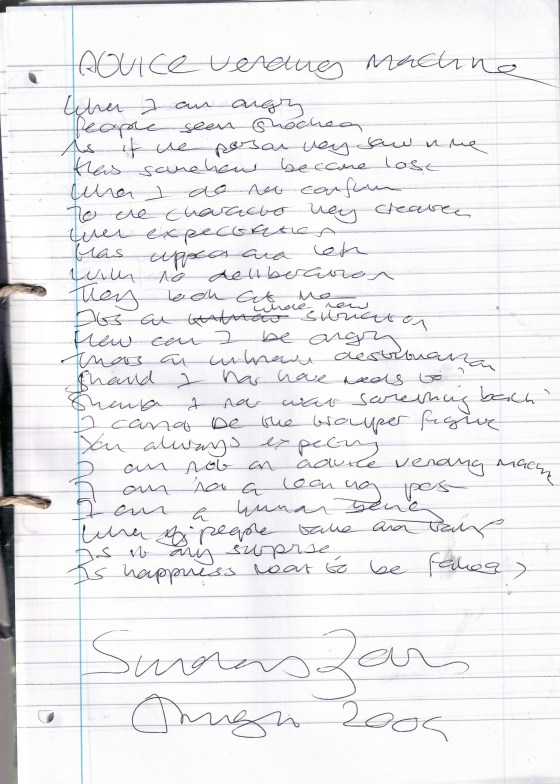 ADVICE vending machine
When I am angry
People seem shocked
As if the person they saw in me
Has somehow become lost
When I do not conform
To the character they created
Their expectation
Has upped and left
With no deliberation
They look at me
It's an whole new situation
How can I be angry
That's an unknown destination
Should I not have needs to
Should I not want something back
I cannot be the
figure
You always expecting
I am not an advice vending machine
I am not a leaning post
I am a human being
When people take and take
Is it any surprise
Is happiness meant to be faked?
2009